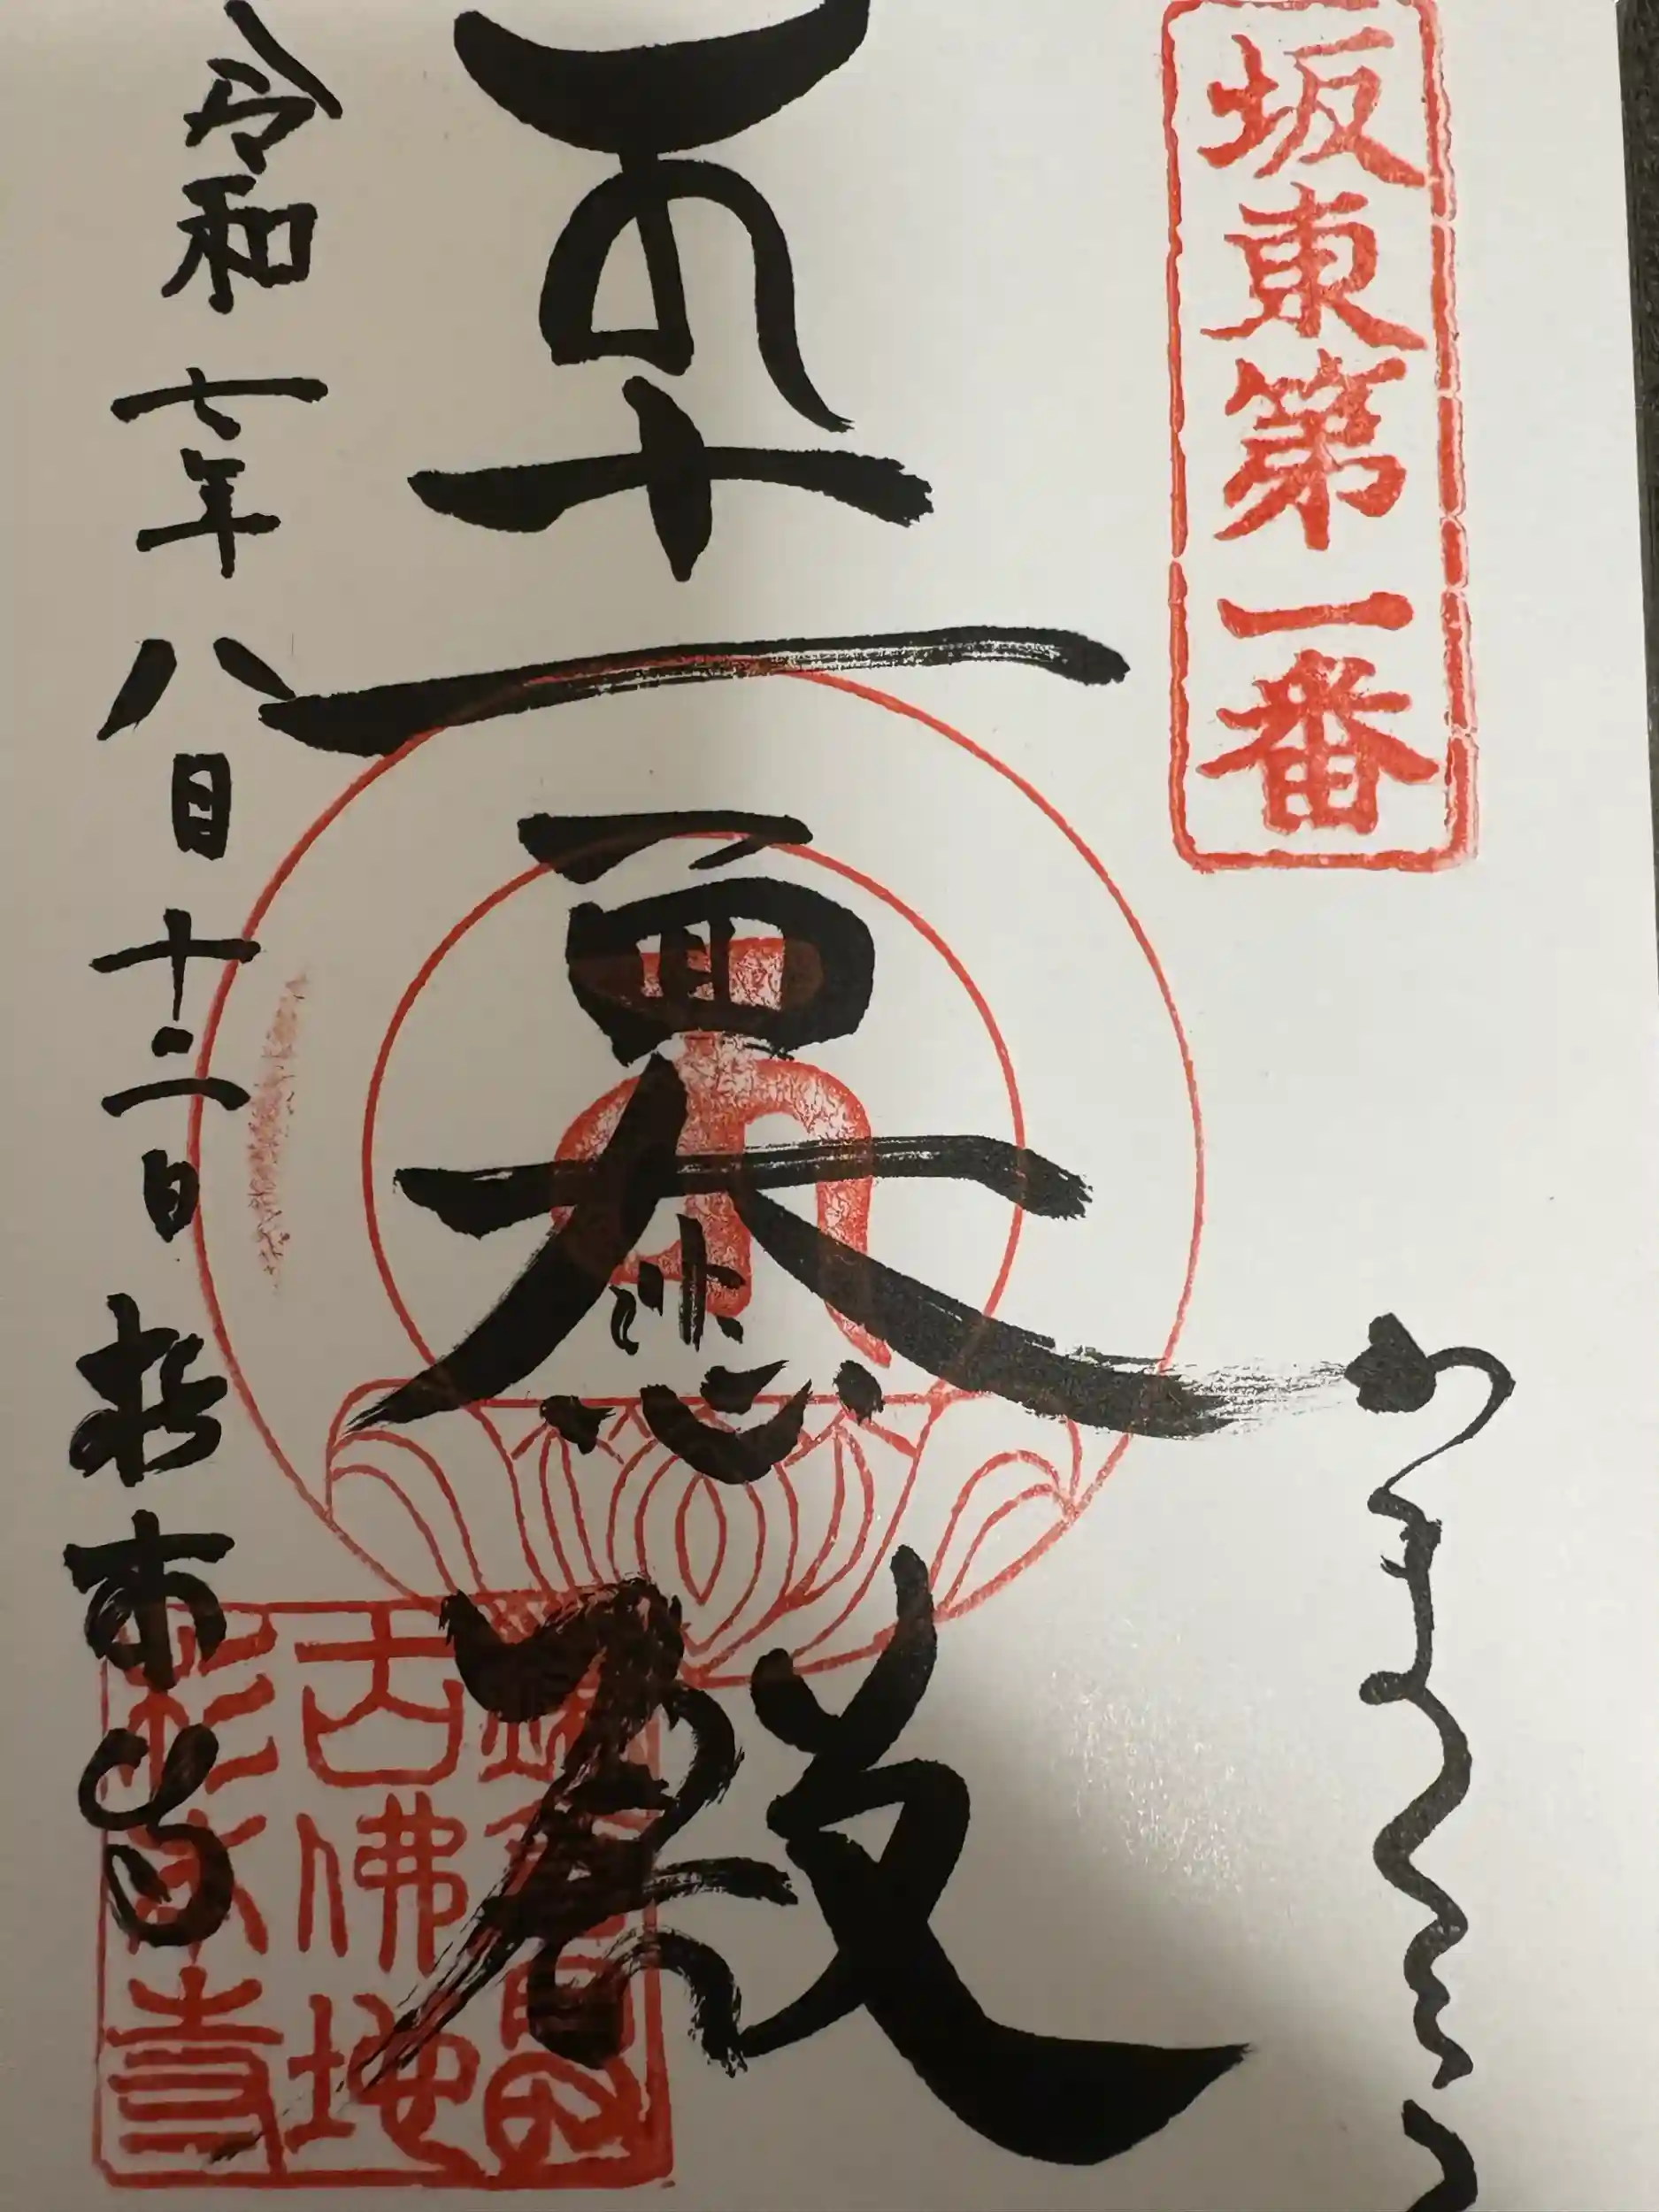 坂東第一番
十一面
大悲殿
令和七年八月十二日 杉本寺
鎌倉最
古佛地
杉本寺